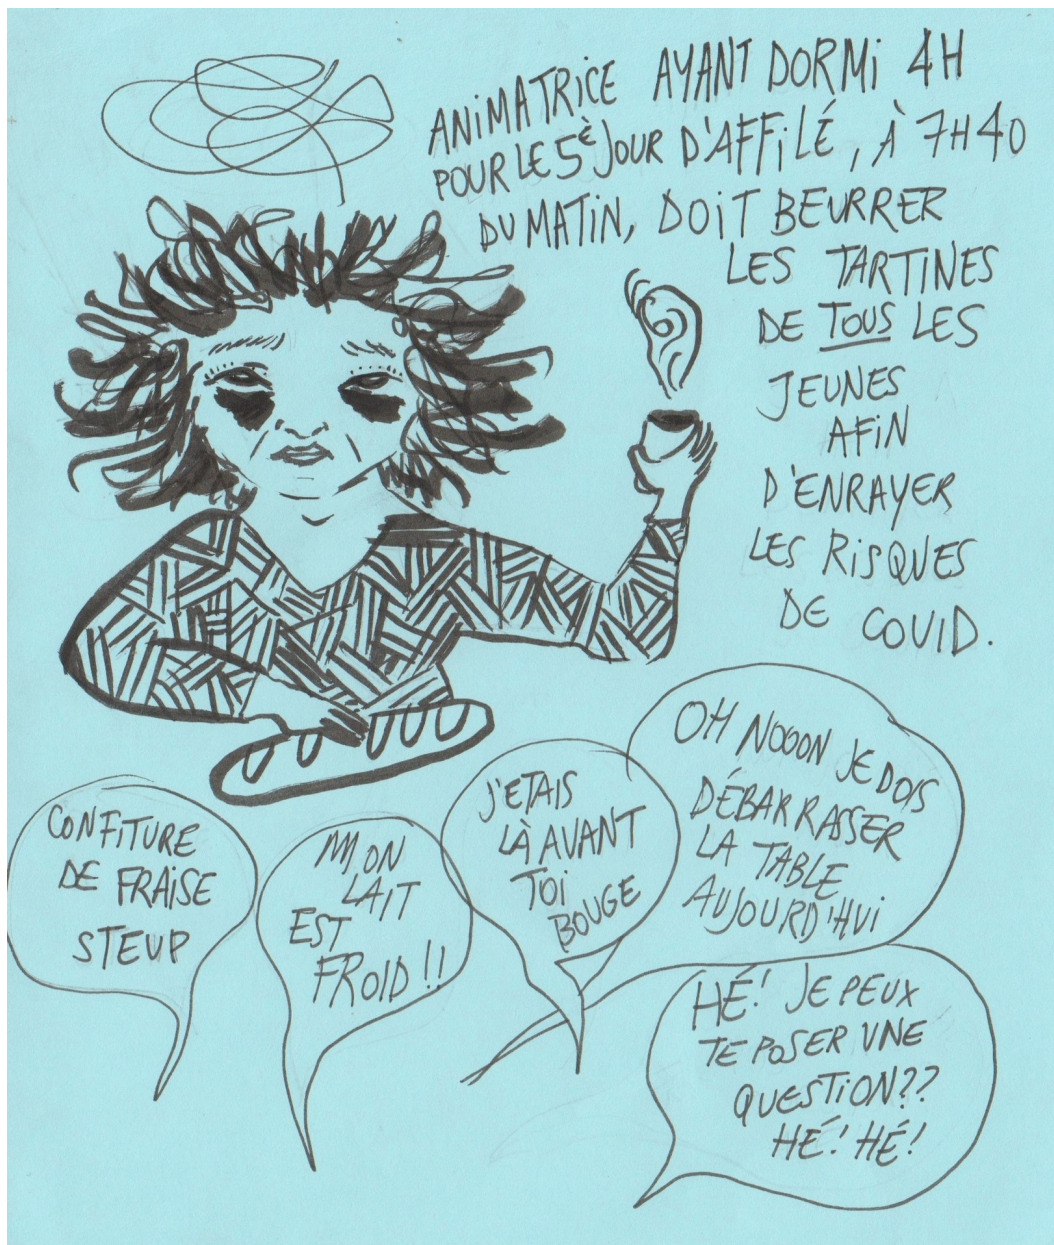 ANIMATRICE AYANT DORMI 4H
POUR LE 5È JOUR D'AFFILÉ, À 7H40
DU MATIN, DOIT BEURRER
LES TARTINES
DE TOUS LES
JEUNES
AFIN
D'ENRAYER
LES RISQUES
DE COVID.
CONFITURE
DE FRAISE
STEUP
MON
LAIT
EST
FROID !!
J'ETAIS
LÀ AVANT
TOI
BOUGE
OH NOOON JE DOIS
DÉBARRASSER
LA TABLE
AUJOURD'HUI
HÉ! JE PEUX
TE POSER UNE
QUESTION??
HÉ! HÉ!